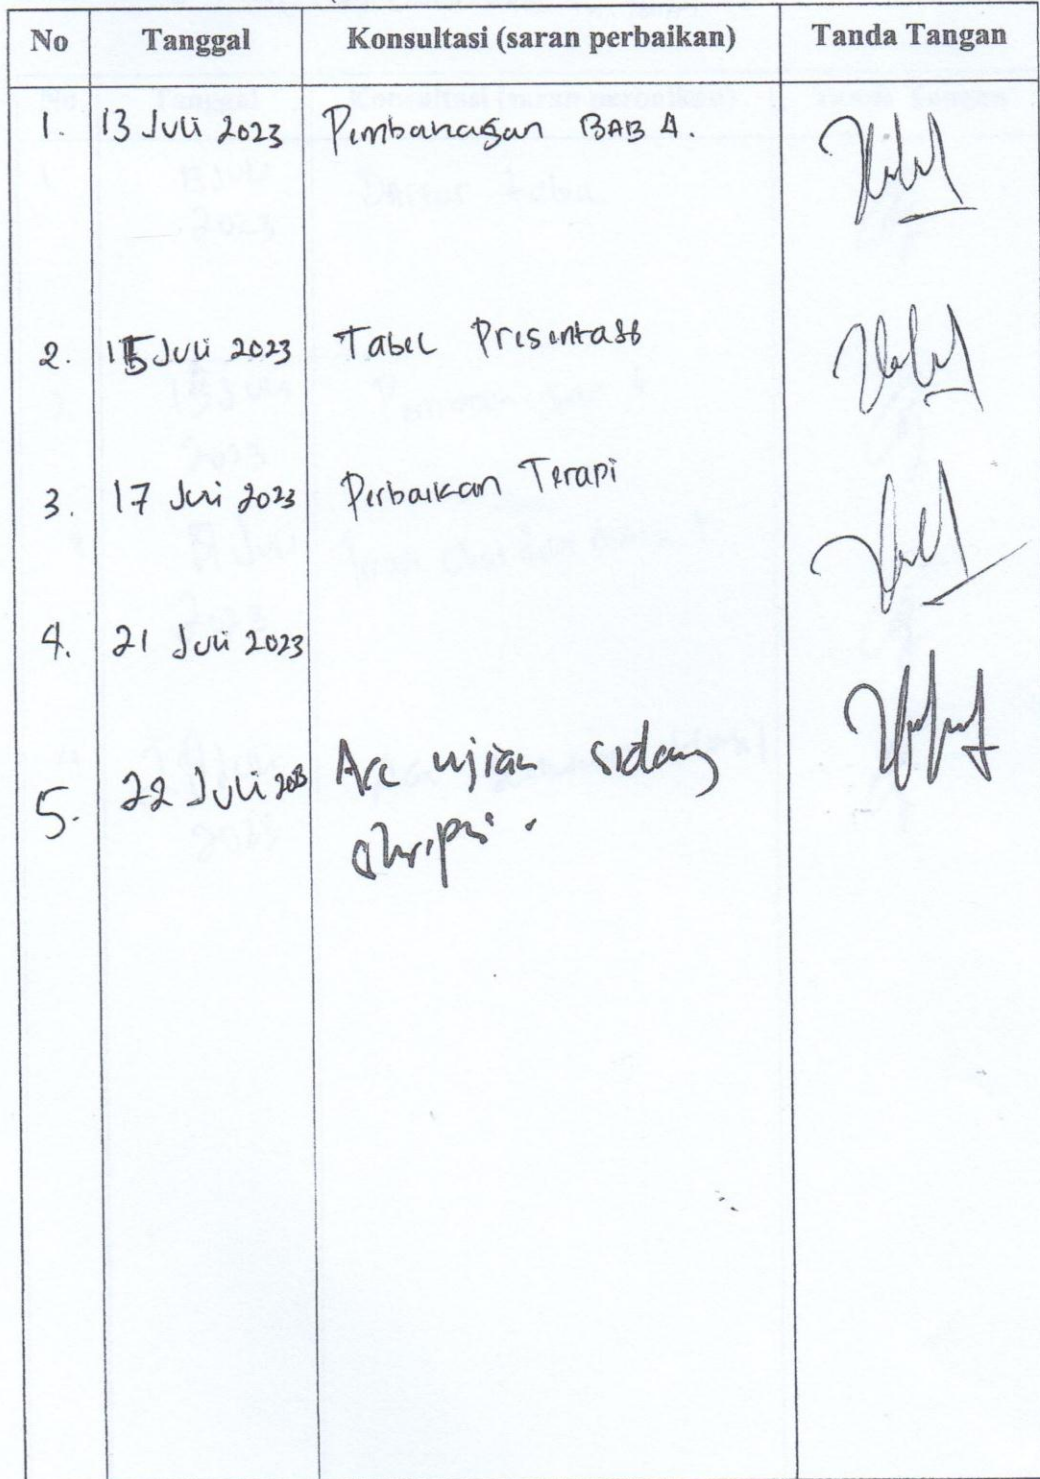 No Tanggal Konsultasi (saran perbaikan) Tanda Tangan
1. 13 Juli 2023 Pembahasan BAB 4.
2. 15 Juli 2023 Tabel Presentasi
3. 17 Juli 2023 Perbaikan Terapi
4. 21 Juli 2023
5. 22 Juli 2023 Acc ujian sidang
skripsi.